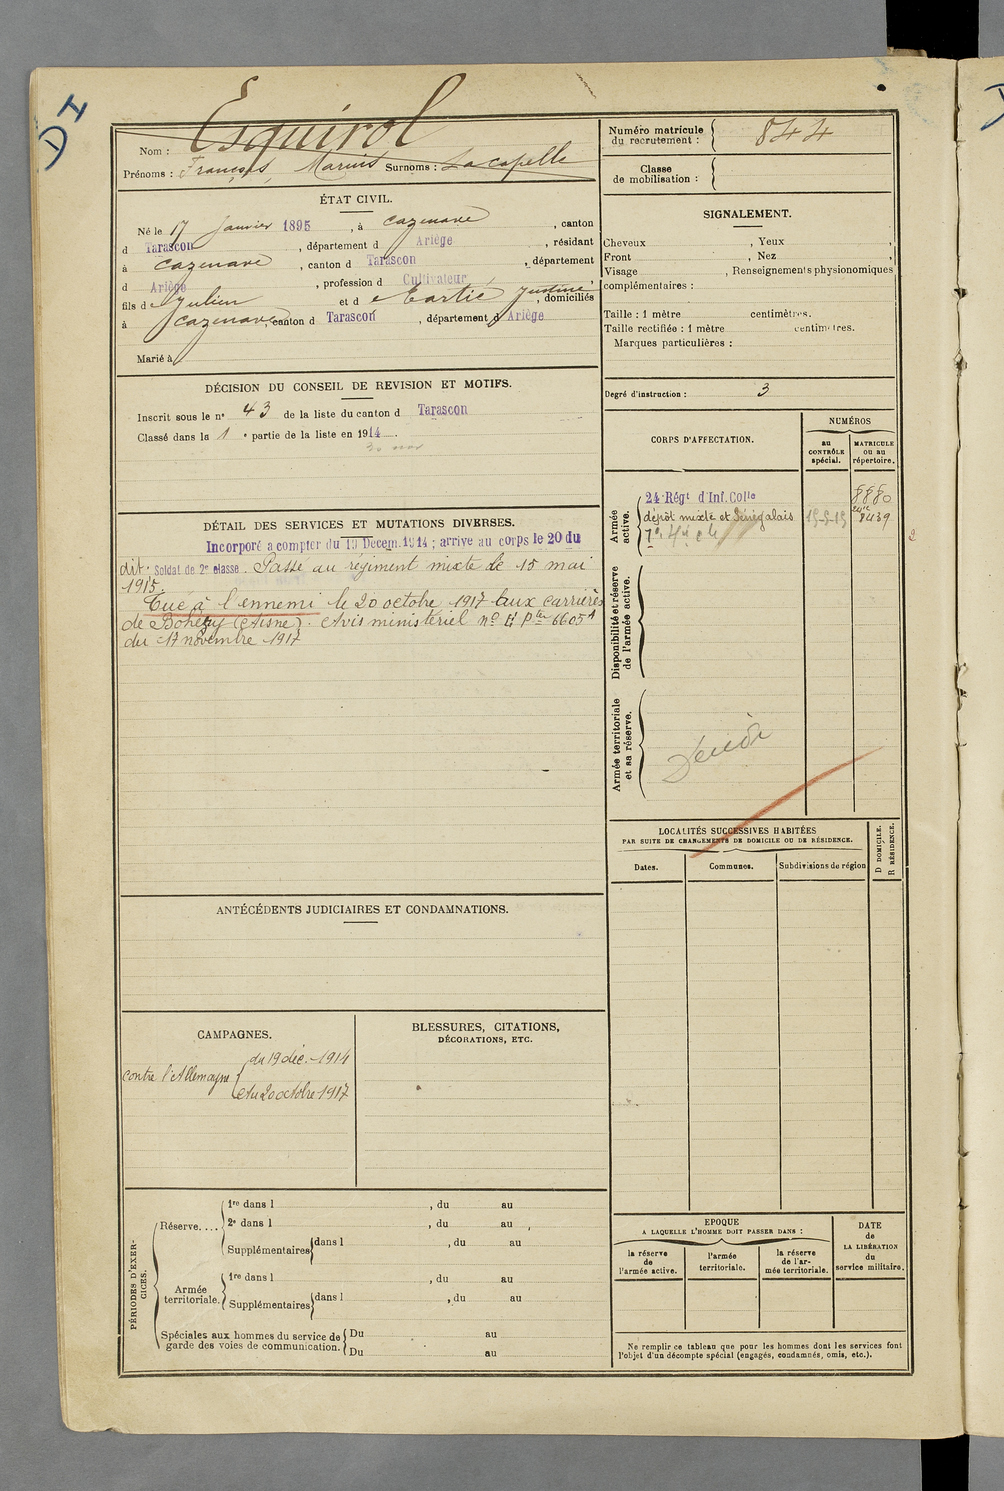 DI
Esquirol
Nom :
Prénoms : François, Marius Surnoms : Lacapelle
Numéro matricule
du recrutement : 844
Classe
de mobilisation :
ÉTAT CIVIL.
Né le 17 Janvier 1895, à Cazenave, canton
d Tarascon, département d Ariège, résidant
à Cazenave, canton d Tarascon, département
d Ariège, profession d Cultivateur
fils de Julien et de Justine, domiciliés
à Cazenave, canton d Tarascon, département d Ariège
Marié à
SIGNALEMENT.
Cheveux , Yeux ,
Front , Nez ,
Visage , Renseignements physionomiques
complémentaires :
Taille : 1 mètre centimètres.
Taille rectifiée : 1 mètre centimètres.
Marques particulières :
Degré d'instruction : 3
DÉCISION DU CONSEIL DE REVISION ET MOTIFS.
Inscrit sous le nº 43 de la liste du canton d Tarascon
Classé dans la 1e partie de la liste en 1914.
DÉTAIL DES SERVICES ET MUTATIONS DIVERSES.
Incorporé a compter du 19 Decem. 1914 ; arrive au corps le 20 du
dit : Soldat de 2e classe. Passé au régiment mixte le 15 mai
1915.
Tué à l'ennemi le 20 octobre 1917 aux carrières
de Bohéry (Aisne). Avis ministériel nº 6605
du 17 novembre 1917
CORPS D'AFFECTATION.
NUMÉROS
au
CONTRÔLE
spécial.
MATRICULE
ou au
répertoire.
Armée
active.
24 Régt d'Inf. Colle 8880
dépôt mixte et Sénégalais 15-5-15 8439
Disponibilité et réserve
de l'armée active.
Armée territoriale
et sa réserve.
LOCALITÉS SUCCESSIVES HABITÉES
PAR SUITE DE CHANGEMENTS DE DOMICILE OU DE RÉSIDENCE.
Dates.
Communes.
Subdivisions de région
D DOMICILE.
R RÉSIDENCE.
ANTÉCÉDENTS JUDICIAIRES ET CONDAMNATIONS.
CAMPAGNES.
contre l'Allemagne
du 19 déc. 1914
au 20 octobre 1917
BLESSURES, CITATIONS,
DÉCORATIONS, ETC.
PÉRIODES D'EXER-
CICES.
Réserve....
1re dans l , du au
2e dans l , du au ,
Supplémentaires dans l , du au
Armée
territoriale.
1re dans l , du au
Supplémentaires dans l , du au
Spéciales aux hommes du service de
garde des voies de communication.
Du au
Du au
EPOQUE
A LAQUELLE L'HOMME DOIT PASSER DANS :
la réserve
de
l'armée active.
l'armée
territoriale.
la réserve
de l'ar-
mée territoriale.
DATE
de
LA LIBÉRATION
du
service militaire.
Ne remplir ce tableau que pour les hommes dont les services font
l'objet d'un décompte spécial (engagés, condamnés, omis, etc.).